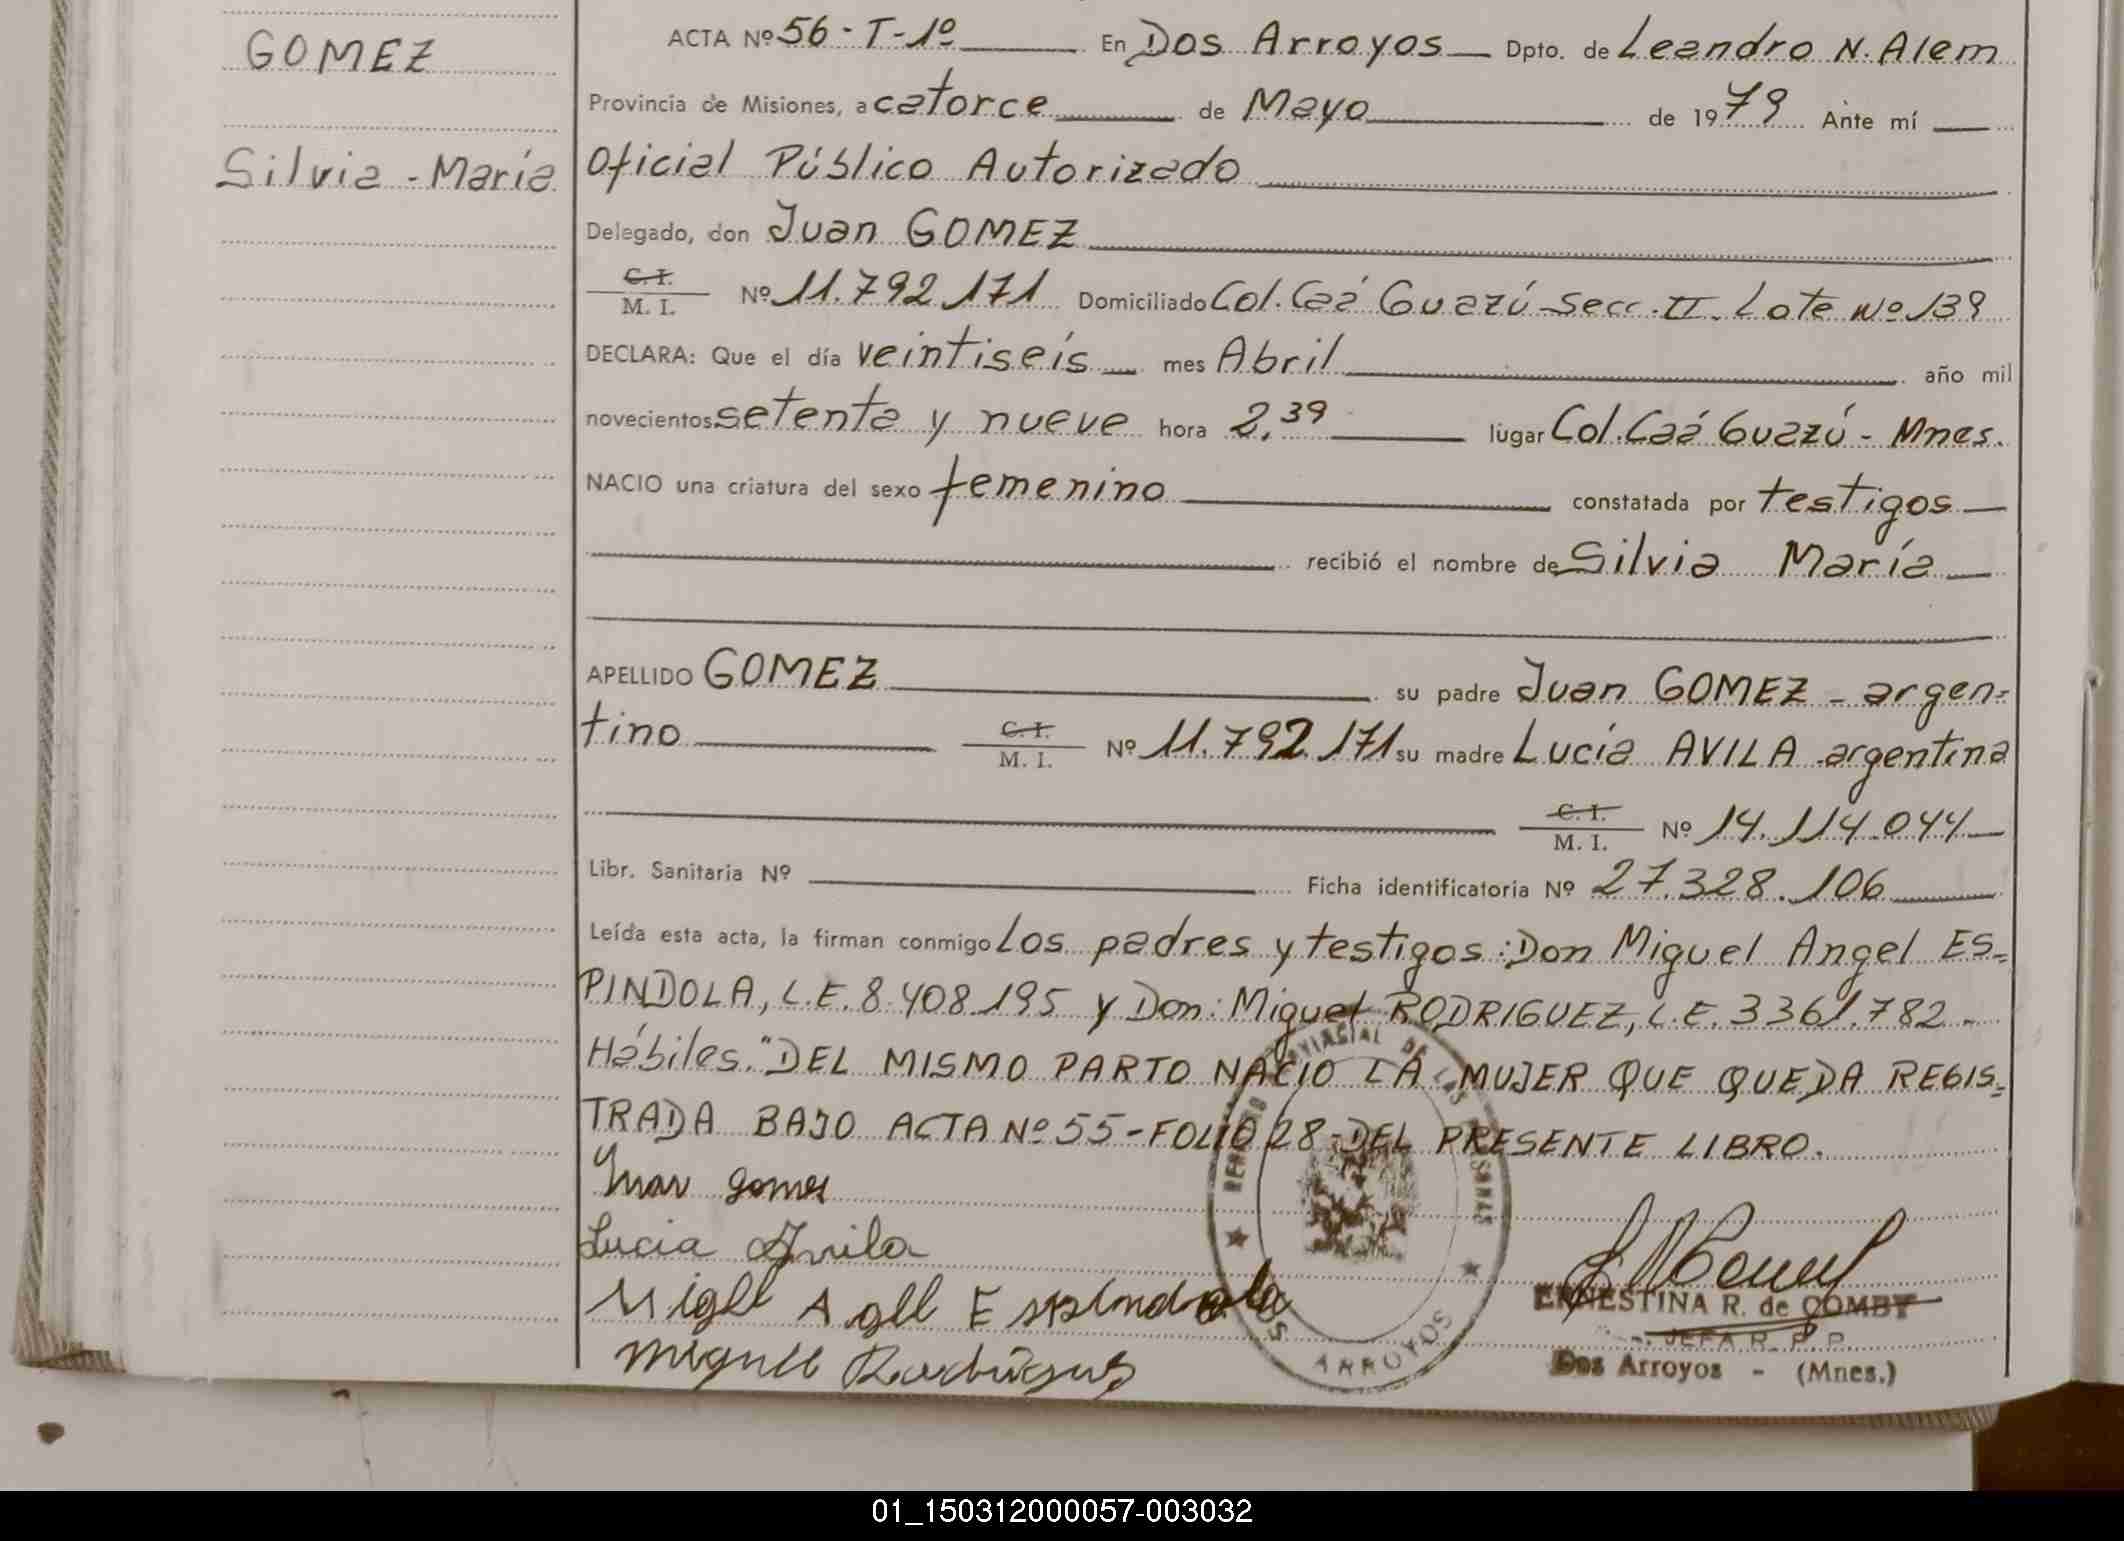 GOMEZ
Silvia - María
ACTA Nº 56 - T - 1º En Dos Arroyos Dpto. de Leandro N. Alem
Provincia de Misiones, a catorce de Mayo de 1979 Ante mí
Oficial Público Autorizado
Delegado, don Juan GOMEZ
C. I.
M. I. Nº 11.792.171 Domiciliado Col. Caá Guazú - Secc. II. Lote Nº 139
DECLARA: Que el día veintiseís mes Abril año mil
novecientos setenta y nueve hora 2,39 lugar Col. Caá Guazú - Mnes.
NACIO una criatura del sexo femenino constatada por testigos
recibió el nombre de Silvia María
APELLIDO GOMEZ su padre Juan GOMEZ - argen=
tino C. I. M. I. Nº 11.792.171 su madre Lucía AVILA - argentina
C. I.
M. I. Nº 14.114.044
Libr. Sanitaria Nº Ficha identificatoria Nº 27.328.106
Leída esta acta, la firman conmigo Los padres y testigos: Don Miguel Angel ES=
PINDOLA, L.E. 8.408.195 y Don: Miguel RODRIGUEZ, L.E. 3361.782 -
Hábiles. "DEL MISMO PARTO NACIO LA MUJER QUE QUEDA REGIS=
TRADA BAJO ACTA Nº 55 - FOLIO 28 - DEL PRESENTE LIBRO.
Juan gomes
Lucia Avila
Migll A gll Espindola
Miguel Rodrigues
DE LAS PERSONAS
ARROYOS
ERNESTINA R. de COMBY
JEFA R. P. P.
Dos Arroyos - (Mnes.)
01_150312000057-003032